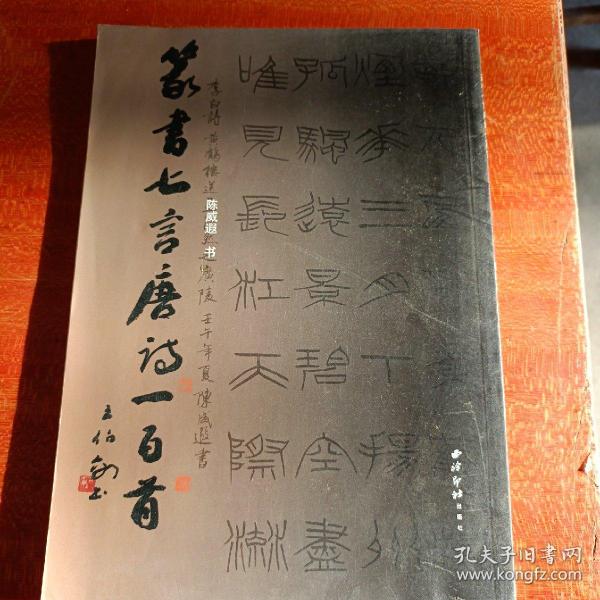 篆書七言唐诗一百首
王伯敏书
陈威遐 书
煙花三月下揚州
孤颿遠景碧空盡
唯見長江天際流
李白詩 黄鶴樓送
廣陵 壬午年夏 陳威遐書
西泠印社
出版社
孔夫子旧书网
www.kongfz.com